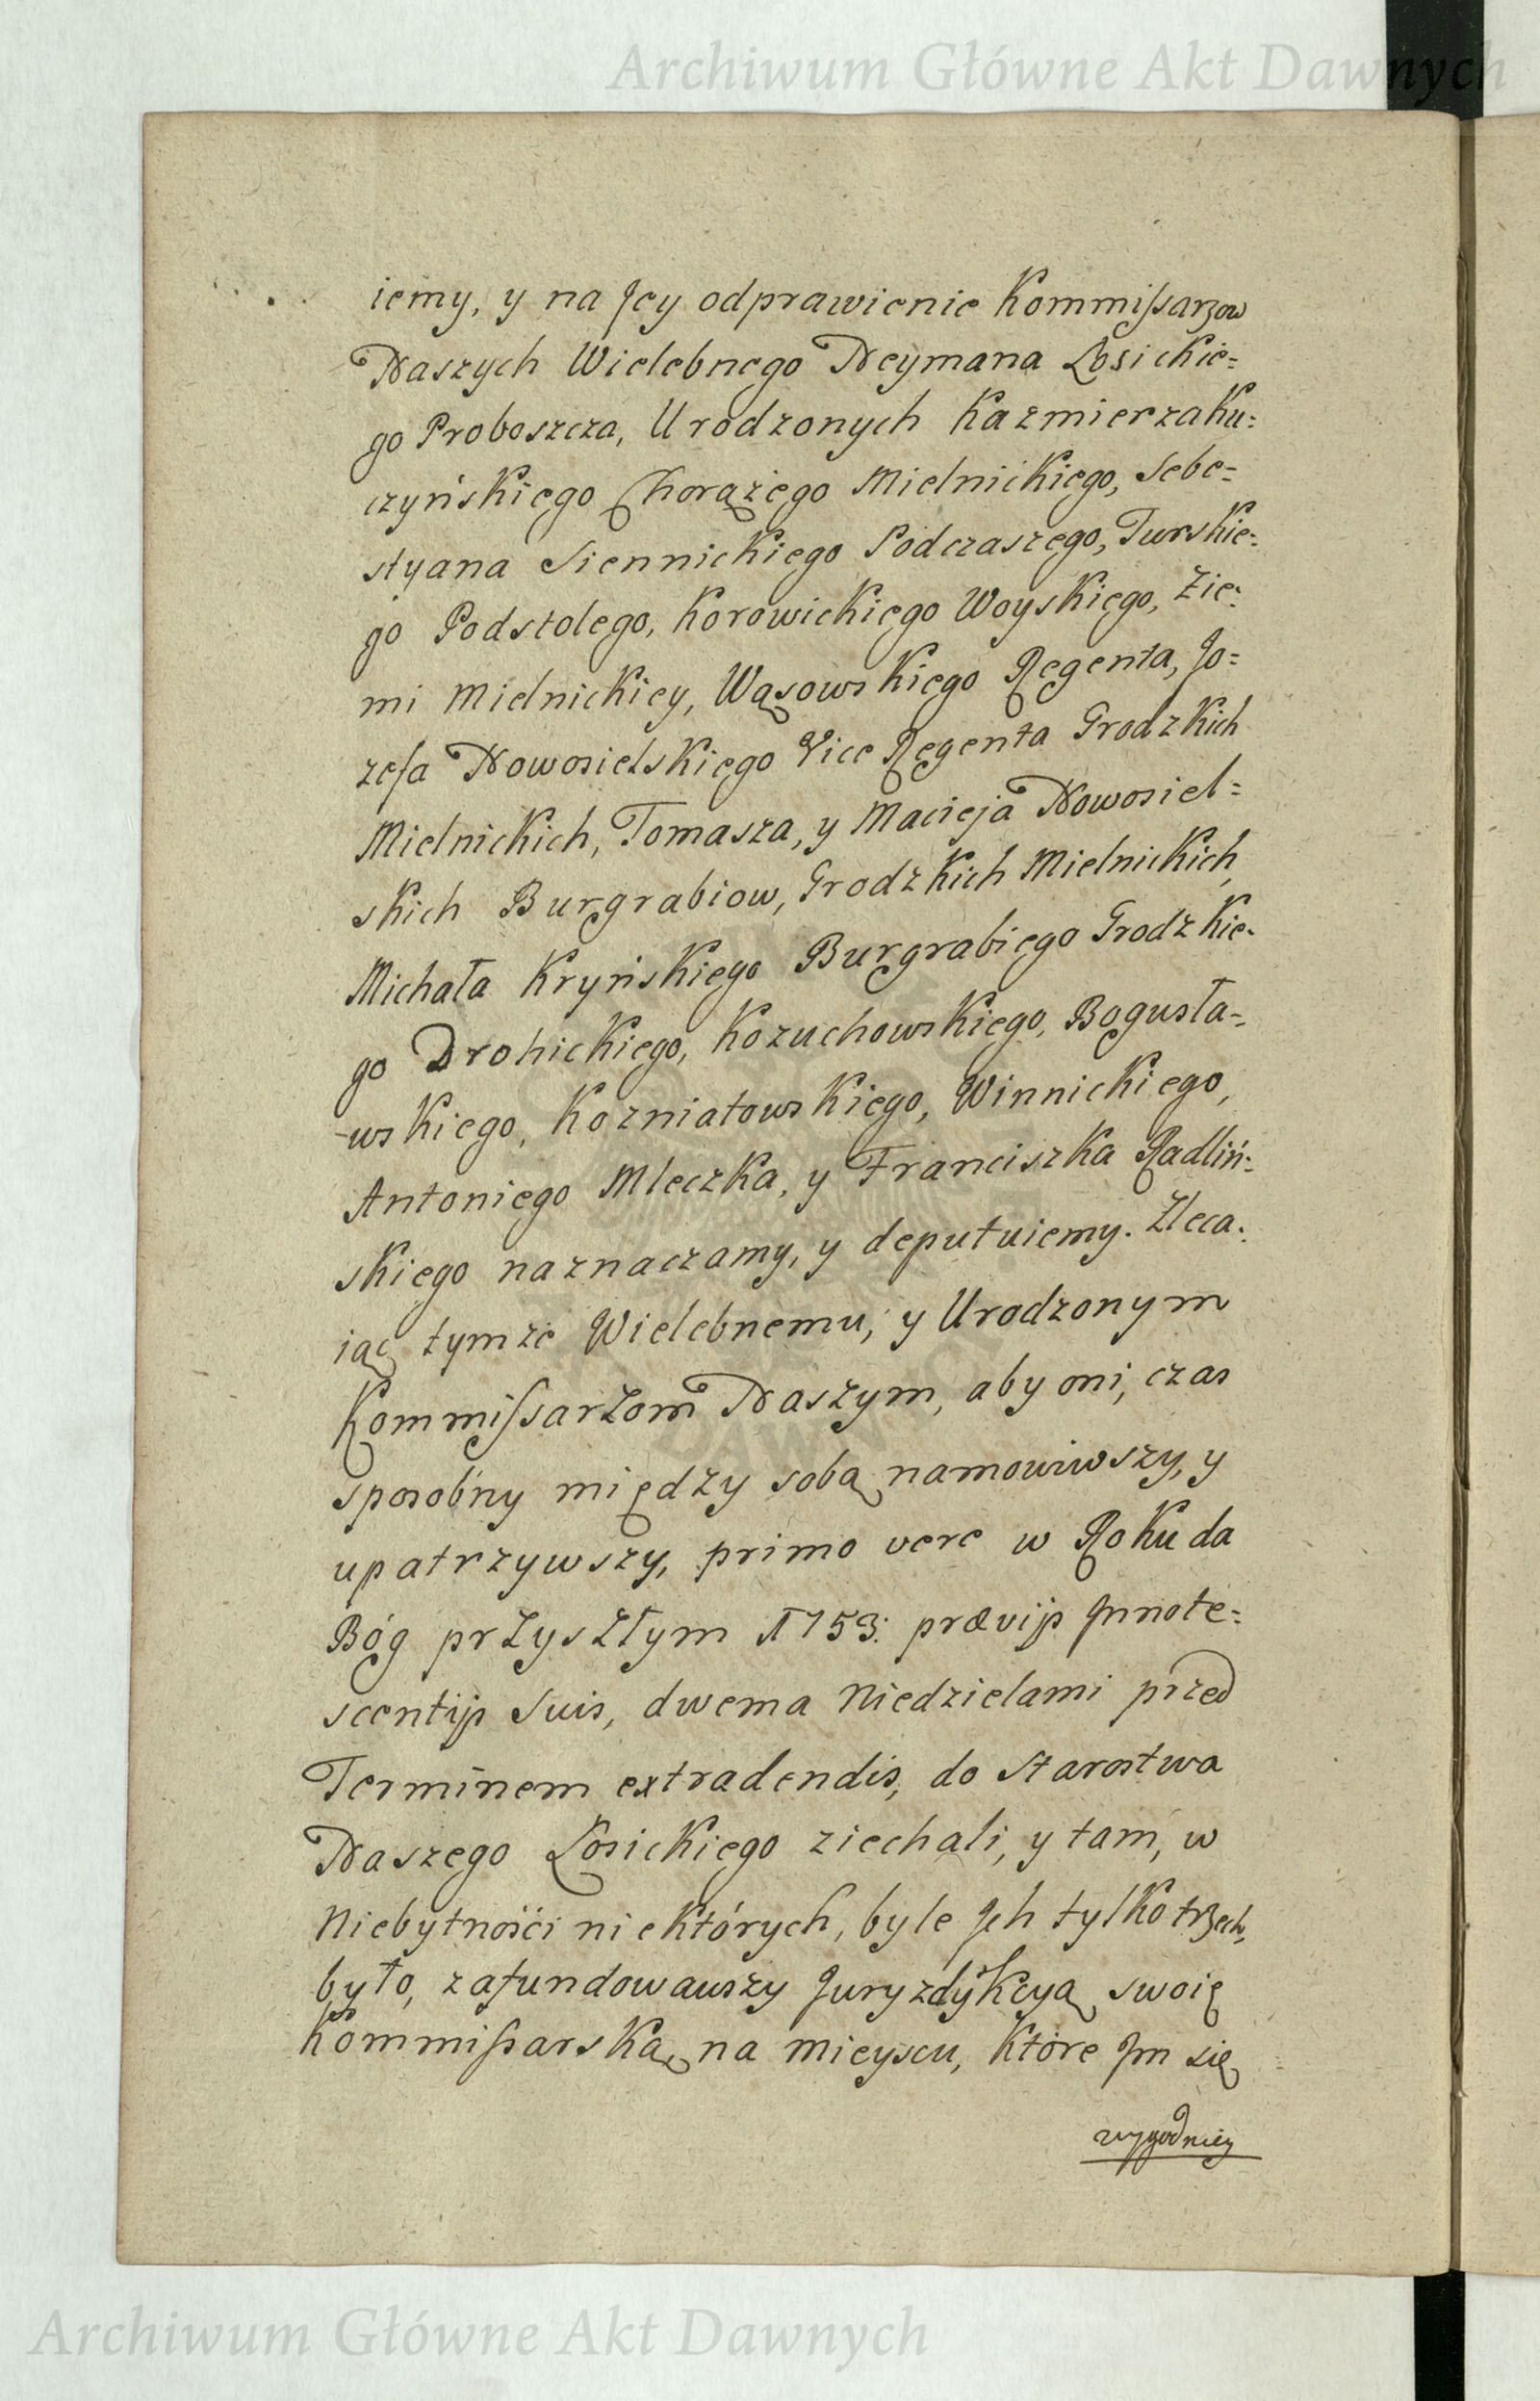 Archiwum Główne Akt Dawnych
iemy, y na Jey odprawienie Kommissarzow
Naszych Wielebnego Neymana Łosickie=
go Proboszcza, Urodzonych Kazmierza Ku=
czyńskiego Chorążego Mielnickiego, Sebe=
styana Siennickiego Podczaszego, Turskie=
go Podstolego, Korowickiego Woyskiego, Zie=
mi Mielnickiey, Wąsowskiego Regenta, Jo=
zefa Nowosielskiego Vice Regenta Grodzkich
Mielnickich, Tomasza, y Macieja Nowosiel=
skich Burgrabiow, Grodzkich Mielnickich,
Michała Kryńskiego Burgrabiego Grodzkie=
go Drohickiego, Kozuchowskiego, Bogusła=
wskiego, Kozniatowskiego, Winnickiego,
Antoniego Mleczka, y Franciszka Radliń=
skiego naznaczamy, y deputuiemy. Zleca=
iąc tymże Wielebnemu, y Urodzonym
Kommissarzom Naszym, aby oni, czas
sposobny między sobą namowiwszy, y
upatrzywszy, primo vere w Roku da
Bóg przyszłym 1753. prævijs Innote=
scentijs Suis, dwema Niedzielami przed
Terminem extradendis, do Starostwa
Naszego Łosickiego ziechali, y tam, w
Niebytności niektórych, byle Ich tylko trzech,
było, zafundowawszy Juryzdykcyą swoię
Kommissarską, na mieyscu, które Im się
wygodniey
Archiwum Główne Akt Dawnych